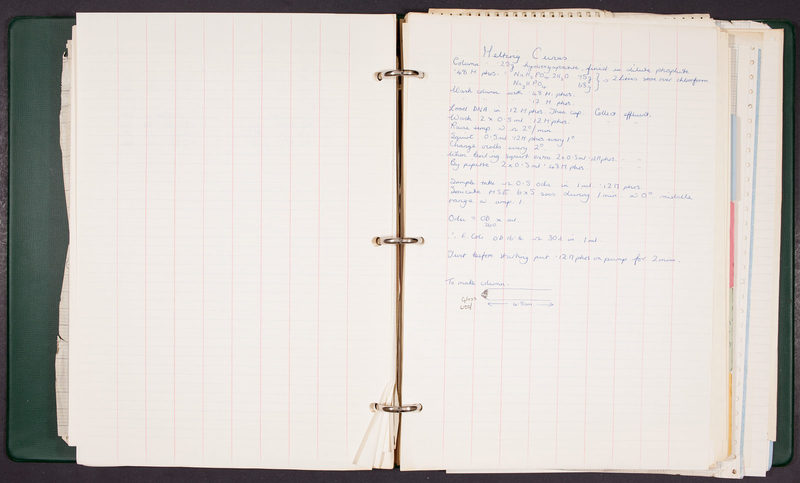 Melting Curves
Column · 25g hydroxyapatite, fined in dilute phosphate
·48 M phos. · NaH₂PO₄ 2H₂O 75g } 2 litres store over chloroform
Na₂HPO₄ 68g
Wash column with ·48 M phos.
·12 M phos.
Load DNA in ·12 M phos. Then cap. Collect effluent.
Wash 2 x 0.5 ml ·12M phos.
Raise temp at 2°/min
Squirt 0.5 ml ·12M phos every 1°
Change vials every 2°
When boiling squirt extra 2x0.5ml ·12M phos.
By pipette 2x0.5ml ·48M phos
Sample take 0.5 odu in 1ml ·12M phos.
Sonicate MSE 6x5 secs during 1min 0° middle
range amp. 1.
Odu = OD x ml
260
∴ E. Coli OD 16.6 30λ in 1ml.
Just before starting put ·12M phos in pump for 2 min.
To make column.
Glass
wool
4.5cm